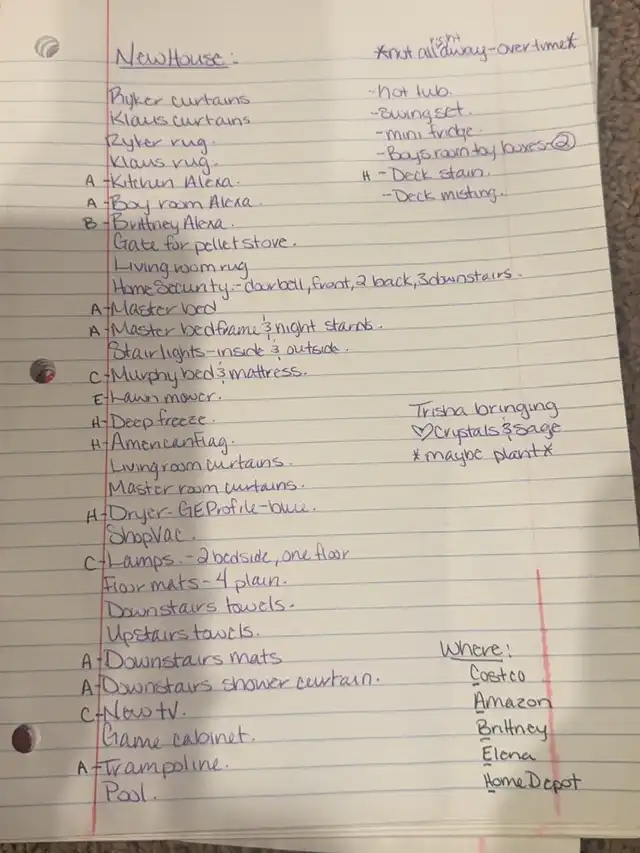 New House:
Ryker curtains
Klaus curtains
Ryker rug.
Klaus rug.
A - Kitchen Alexa.
A - Boy room Alexa.
B - Brittney Alexa.
Gate for pellet stove.
Living room rug
Home Security - doorbell, front, 2 back, 3 downstairs.
A - Master bed
A - Master bedframe & night stands.
Stair lights - inside & outside.
C - Murphy bed & mattress.
E - Lawn mower.
H - Deep freeze.
H - American flag.
Living room curtains.
Master room curtains.
H - Dryer - GE Profile - blue.
Shop Vac.
C - Lamps. - 2 bedside, one floor
Floor mats - 4 plain.
Downstairs towels.
Upstairs towels.
A - Downstairs mats
A - Downstairs shower curtain.
C - New tv.
Game cabinet.
A - Trampoline.
Pool.
*not all right away - overtime*
- hot tub.
- swing set.
- mini fridge.
- Boys room toy boxes - 2
H - Deck stain.
- Deck misting.
Trisha bringing
♡ crystals & sage
*maybe plant*
Where:
Costco
Amazon
Brittney
Elena
Home Depot